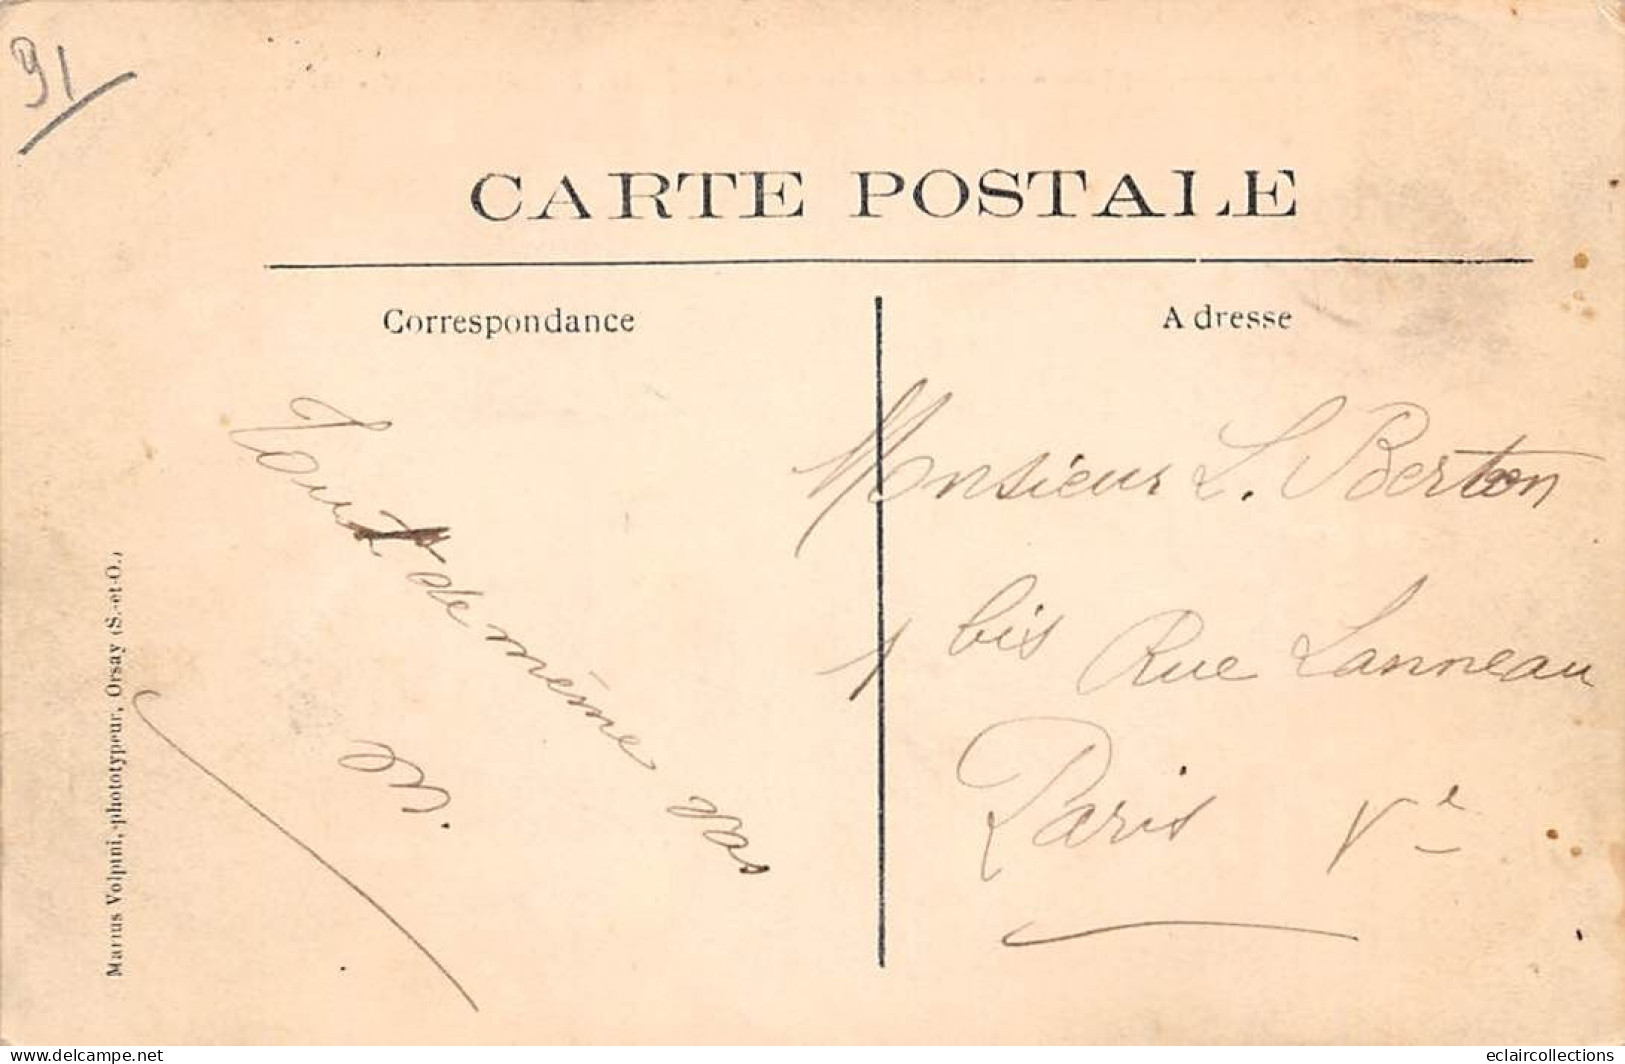 91
CARTE POSTALE
Correspondance
Adresse
Tout de même
Monsieur L. Berton
1 bis Rue Lanneau
Paris Ve
Marius Volpini, phototypeur, Orsay (S.-et-O.)
delcampe.net
eclaircollections